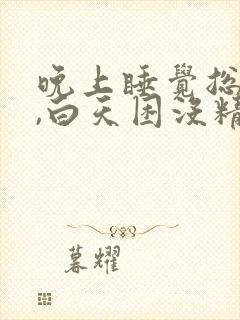 晚上睡覺總
,白天困沒精
暮耀